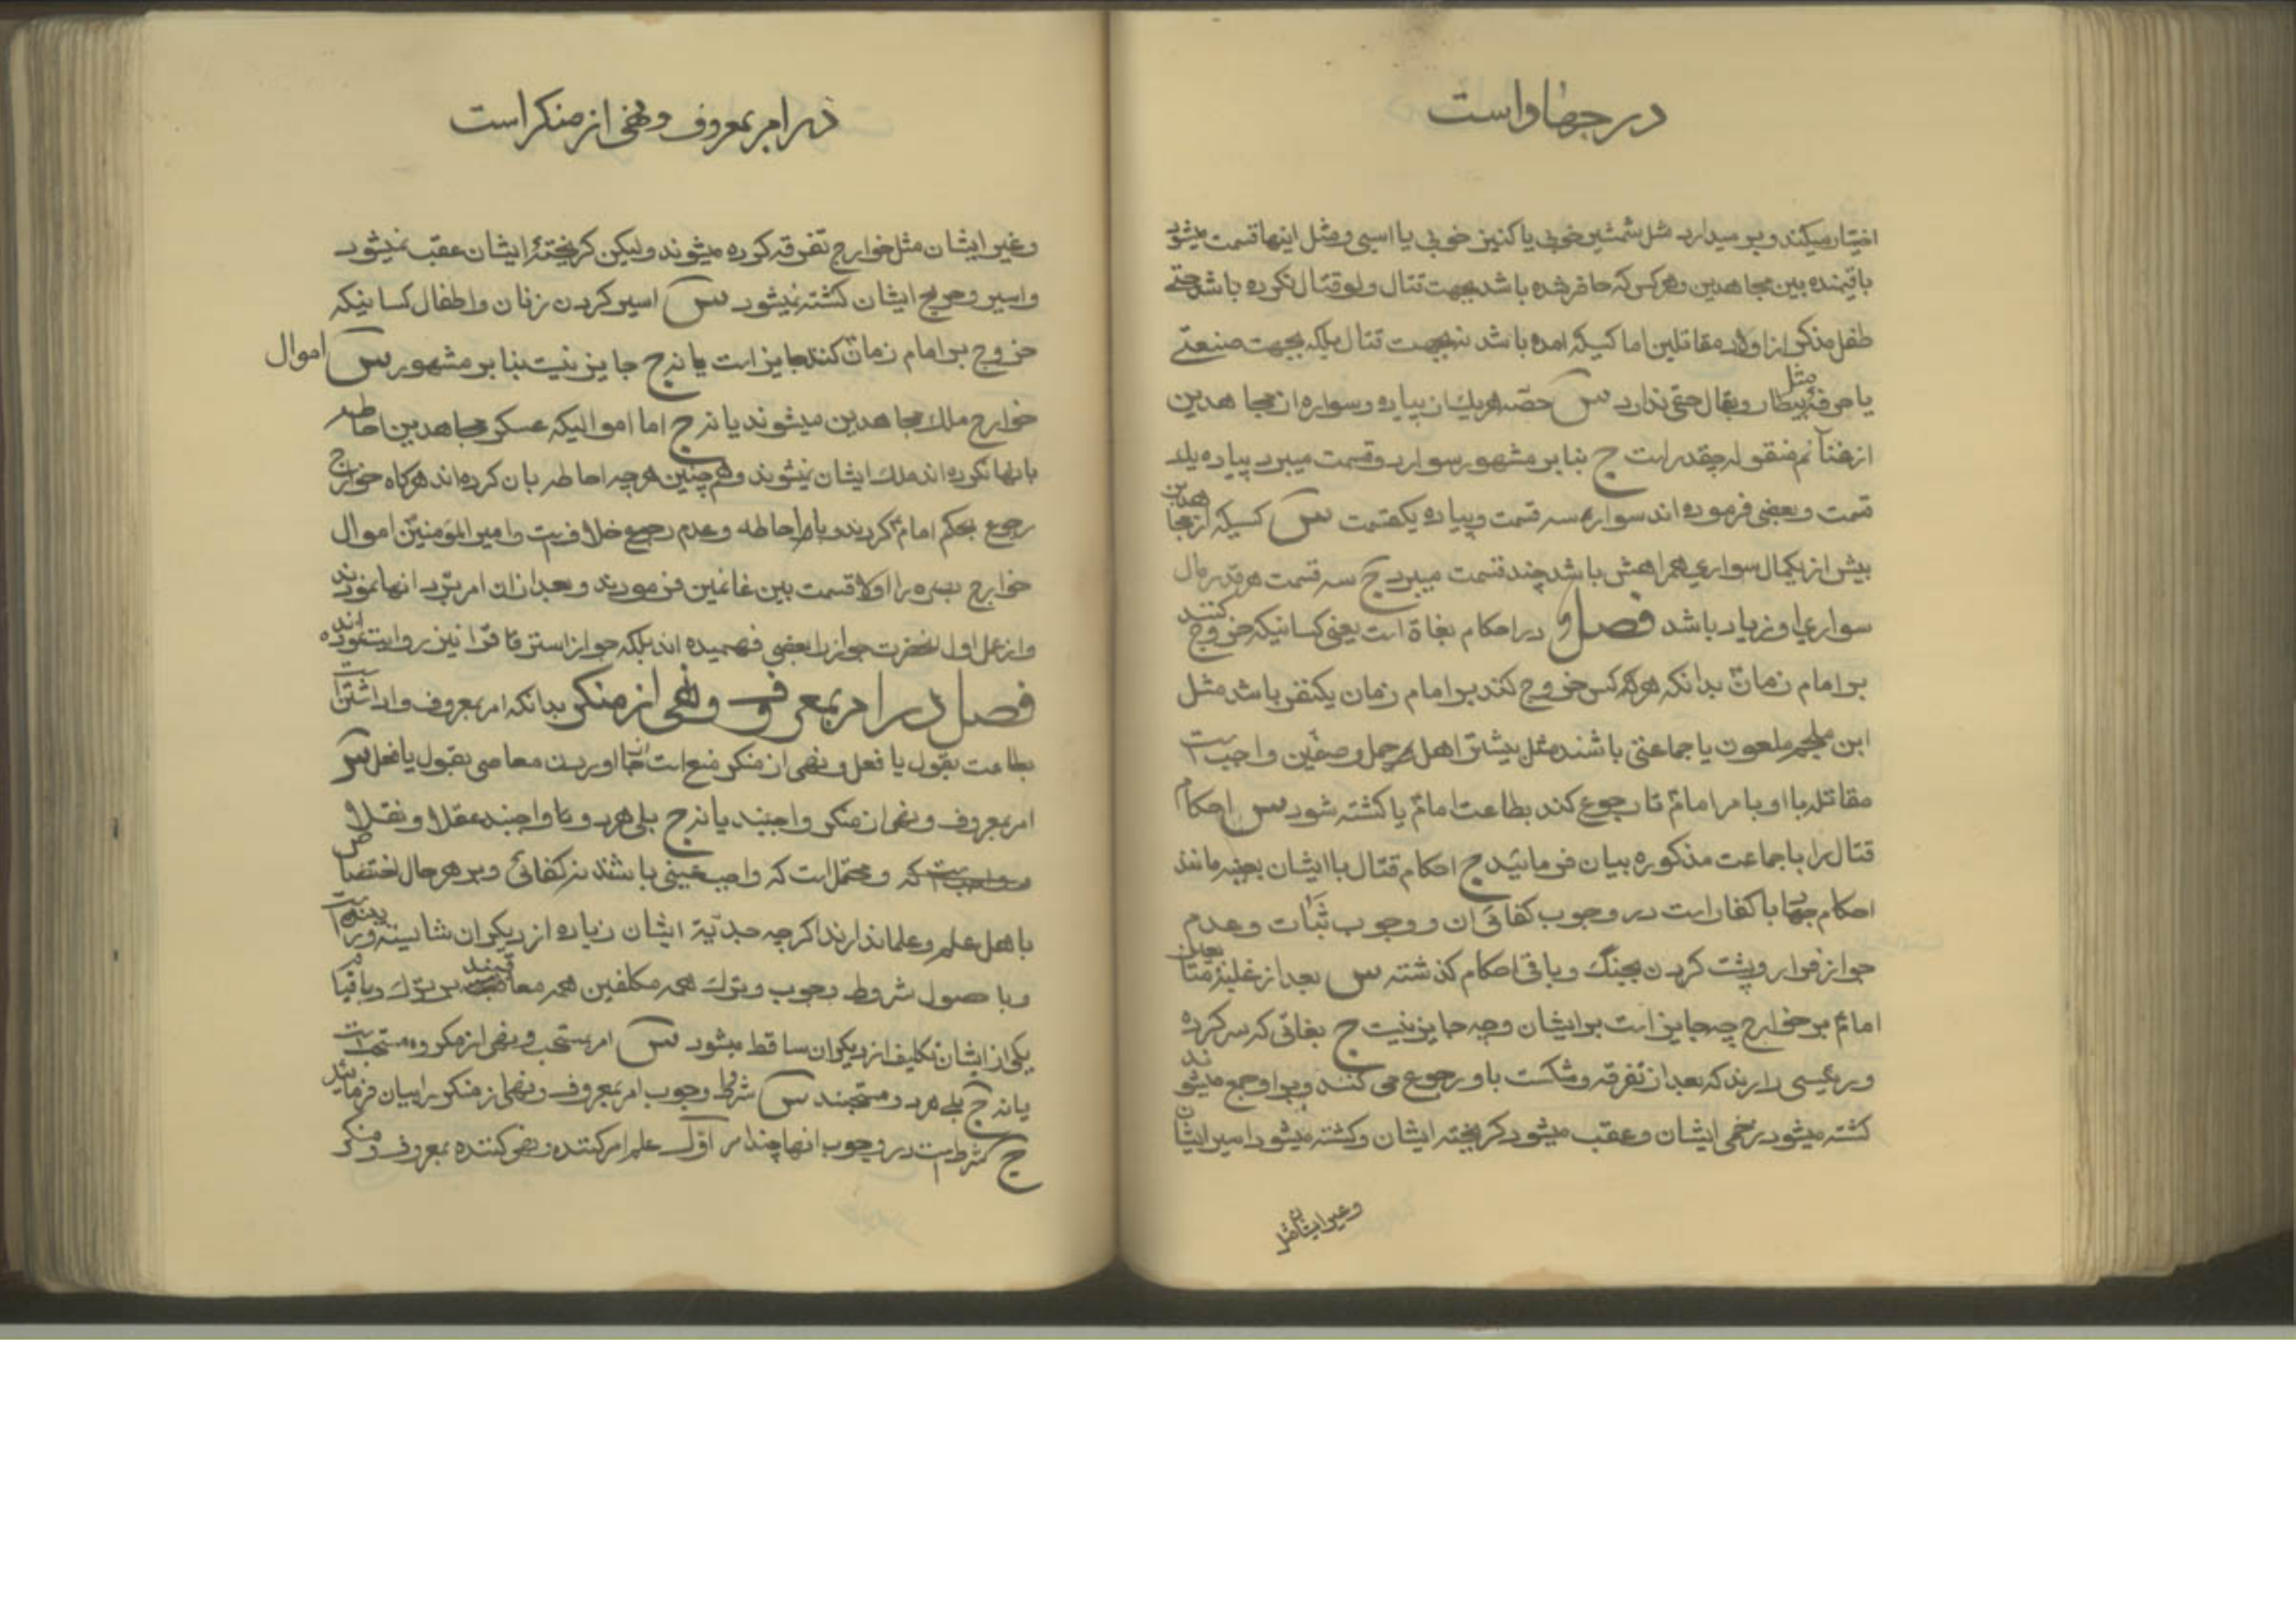 در جهاد است
اختیار میکند و بر میدارد مثل شمشیر خوبی یا کنیز خوبی یا اسبی و مثل اینها قسمت میشود
باقیمنده بین مجاهدین و هر کس که حاضر شده باشد بجهت قتال ولو قتال نکرده باشد حتی
طفل مذکر از اولاد مقاتلین اما کسیکه امده باشد نه بجهت قتال بلکه بجهت صنعتی
یا حرفۀ مثل بیطار و بقال حقی ندارد س حصّه هر یك از پیاده و سواره از مجاهدین
از غنائم منقوله چقدر است ج بنا بر مشهور سوار دو قسمت میبرد پیاده یك
قسمت و بعضی فرموده اند سواره سه قسمت و پیاده یکقسمت س کسیکه از مجاهدین
بیش از یکمال سواری همراهش باشد چند قسمت میبرد ج سه قسمت هر قدر مال
سواری او زیاد باشد فصل در احکام بغاة است یعنی کسانیکه خروج کنند
بر امام زمانّ بدانکه هر که کس خروج کند بر امام زمان یکنفر باشد مثل
ابن ملجم ملعون یا جماعتی باشند مثل بیشتر اهل جمل و صفّین واجب است
مقاتله با او بامر امامّ تا رجوع کند بطاعت امامّ یا کشته شود س احکام
قتال را با جماعت مذکوره بیان فرمائید ج احکام قتال با ایشان بعینه مانند
احکام جهاد با کفار است در وجوب کفائی ان و وجوب ثبات و عدم
جواز فرار و پشت کردن بجنگ و باقی احکام گذشته س بعد از غلبۀ متابعین
امامّ بر خوارج چه جایز است بر ایشان و چه جایز نیست ج بغاتی که سرکرده
و رئیسی دارند که بعد از تفرقه و شکست باو رجوع می کنند و بر او جمع میشوند
کشته میشود زخمی ایشان و عقب میشود گریخته ایشان و کشته میشود اسیر ایشان
و غیر ایشان مثل
در امر بمعروف و نهی از منکر است
و غیر ایشان مثل خوارج تفرقه کرده میشوند ولیکن گریختۀ ایشان عقب نمیشود
و اسیر و جریح ایشان کشته نمیشود س اسیر کردن زنان و اطفال کسانیکه
خروج بر امام زمانّ کنند جایز است یا نه ج جایز نیست بنا بر مشهور س اموال
خوارج ملك مجاهدین میشوند یا نه ج اما اموالیکه عسکر مجاهدین احاطه
بانها نکرده اند ملك ایشان نمیشوند و همچنین هر چه احاطه بان کرده اند هرگاه خوارج
رجوع بحکم امامّ کردند و با احاطه و عدم رجوع خلافیست و امیر المؤمنینّ اموال
خوارج بصره را اولا قسمت بین غانمین فرمودند و بعد از ان امر برّد انها نمودند
و از عمل اول انحضرت جواز را بعضی فهمیده اند بلکه جواز استرقاق را نیز روایت نموده اند
فصل در امر بمعروف و نهی از منکر بدانکه امر بمعروف واداشتن است
بطاعت بقول یا فعل و نهی از منکر منع است از بجا اوردن معاصی بقول یا فعل س
امر بمعروف و نهی از منکر واجبند یا نه ج بلی هر دو تا واجبند عقلا و نقلا
که و محتمل است که واجب عینی باشند نه کفائی و بر هر حال اختصاص
باهل علم و علما ندارند اگرچه جدیّة ایشان زیاده از دیگران شایسته و زیبنده است
و با حصول شروط وجوب و ترك همه مکلفین همه معاقبند بر ترك و با قیام
یکی از ایشان تکلیف از دیگران ساقط میشود س امر بمستحب و نهی از مکروه مستحب است
یا نه ج بلی هر دو مستحبند س شروط وجوب امر بمعروف و نهی از منکر را بیان فرمائید
ج شرط است در وجوب انها چند امر اوّل علم امر کننده و نهی کننده بمعروف و منکر